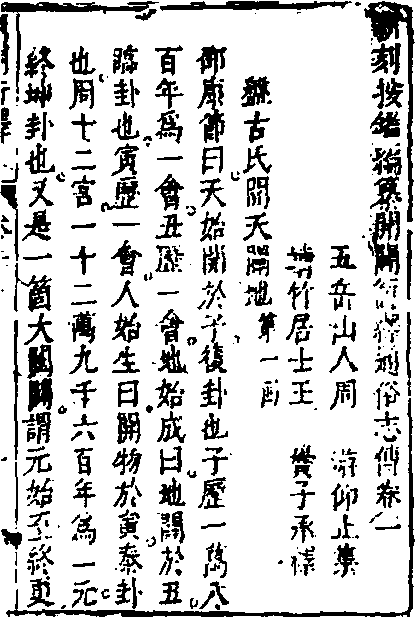 新刻按鑑編纂開闢衍繹通俗志傳卷一
五岳山人周 游仰止集
靖竹居士王 黌子承釋
盤古氏開天闢地 第一回
邵康節曰天始開於子復卦也子歷一萬八
百年爲一會丑歷一會地始成曰地闢於丑
臨卦也寅歷一會人始生曰開物於寅泰卦
也周十二宮一十二萬九千六百年爲一元
終坤卦也又是一箇大開闢謂元始至終更